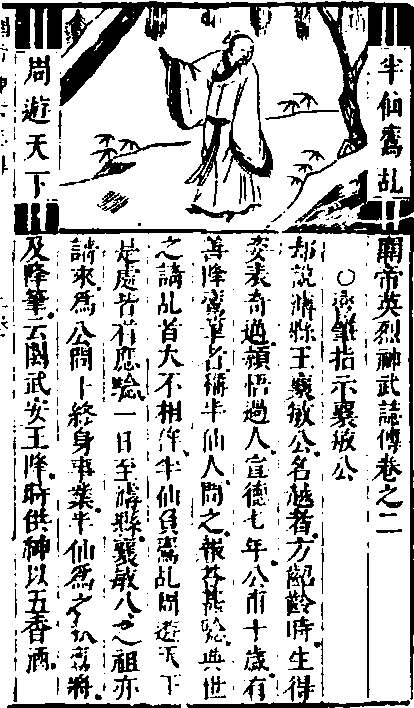 半仙鸞乩
周遊天下
關帝英烈神武誌傳卷之二
○鸞筆指示襄敏公
却說濬縣王襄敏公名越者方齠齡時生得
姿表奇邁頴悟過人宣德七年公甫十歲有
善降鸞筆名稱半仙人問之報答甚驗與世
之請乩者大不相侔半仙負鸞乩周遊天下
是處皆有應驗一日至濬縣襄敏公之祖亦
請來爲公問卜終身事業半仙爲之
及降筆云關武安王降時供神以五香酒